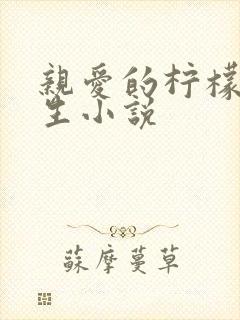 親愛的柠檬
生小説
蘇摩蔓草